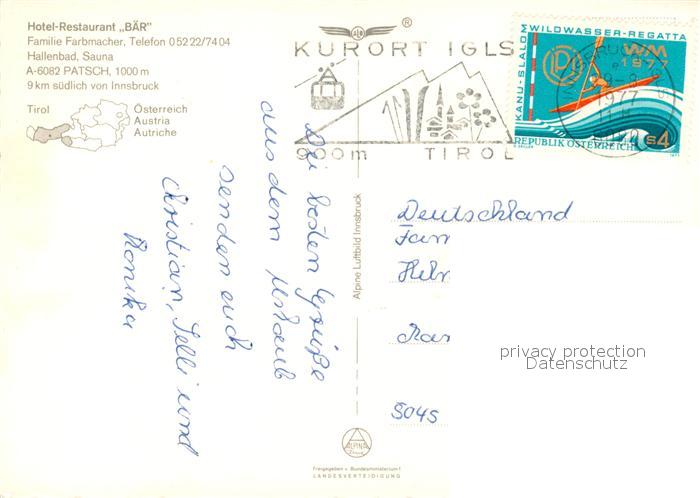 Hotel-Restaurant „BÄR"
Familie Farbmacher, Telefon 0 52 22/74 04
Hallenbad, Sauna
A-6082 PATSCH, 1000 m
9 km südlich von Innsbruck
Tirol
Österreich
Austria
Autriche
®
KURORT IGLS
900m TIROL
KANU-SLALOM WILDWASSER-REGATTA
WM
1977
REPUBLIK ÖSTERREICH
S4
1977
Die besten Grüße
aus dem Urlaub
senden euch
Christian, Selli und
Monika
Alpine Luftbild Innsbruck
Deutschland
Fam
5045
privacy protection
Datenschutz
ALPINA
Freigegeben v. Bundesministerium f.
LANDESVERTEIDIGUNG